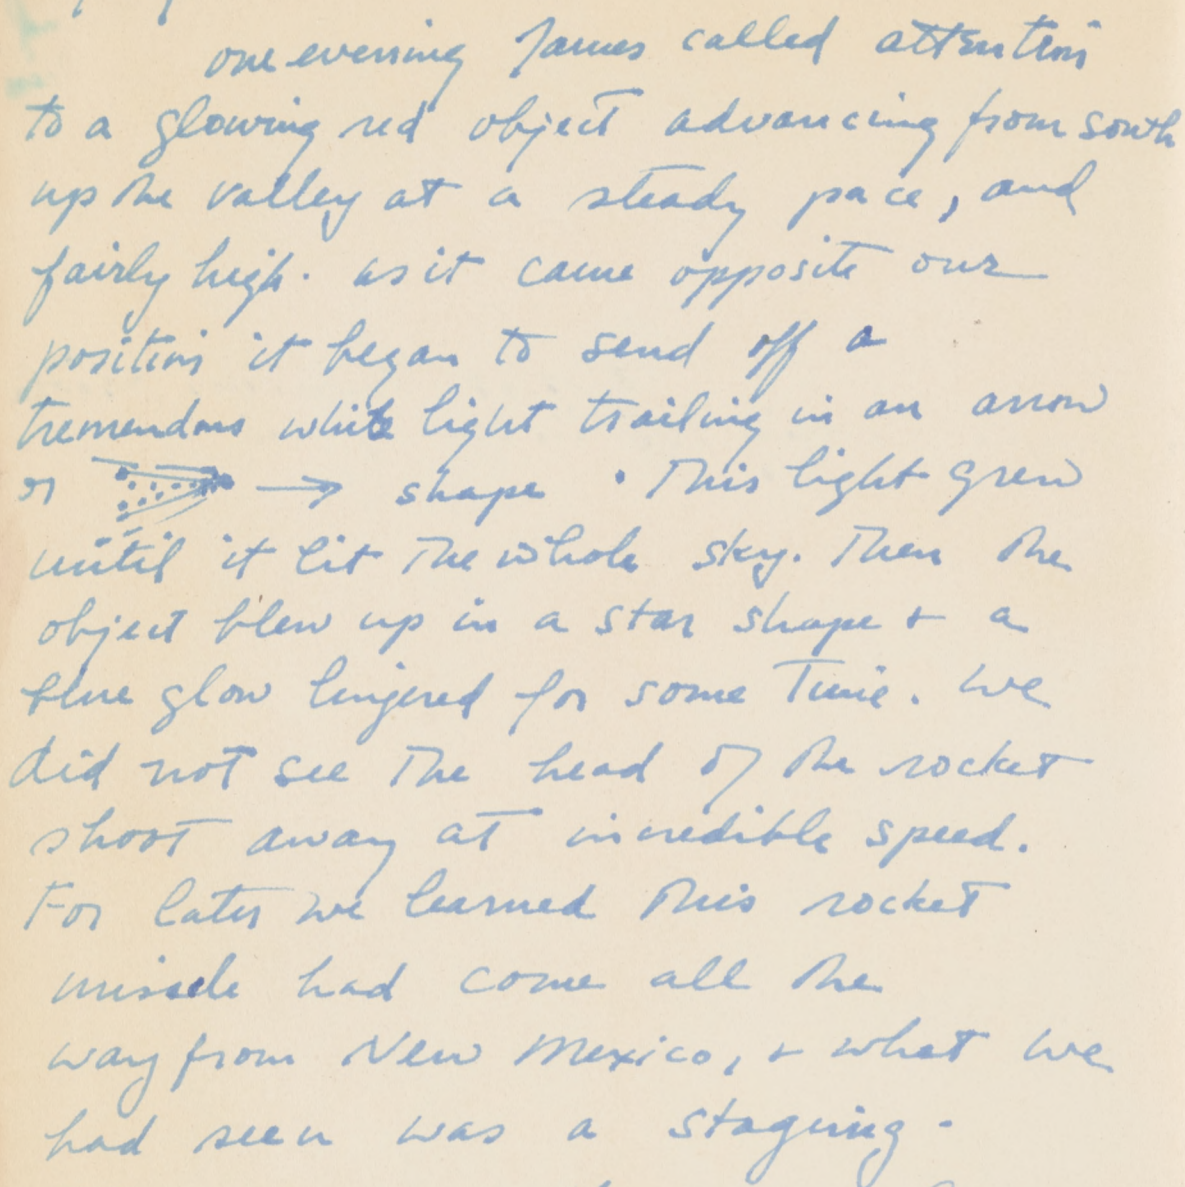 one evening James called attention
to a glowing red object advancing from south
up the valley at a steady pace, and
fairly high. as it came opposite our
position it began to send off a
tremendous white light trailing in an arrow
or → shape. This light grew
until it lit the whole sky. Then the
object blew up in a star shape + a
blue glow lingered for some time. We
did not see the head of the rocket
shoot away at incredible speed.
For later we learned this rocket
missele had come all the
way from New Mexico, + what we
had seen was a staging.